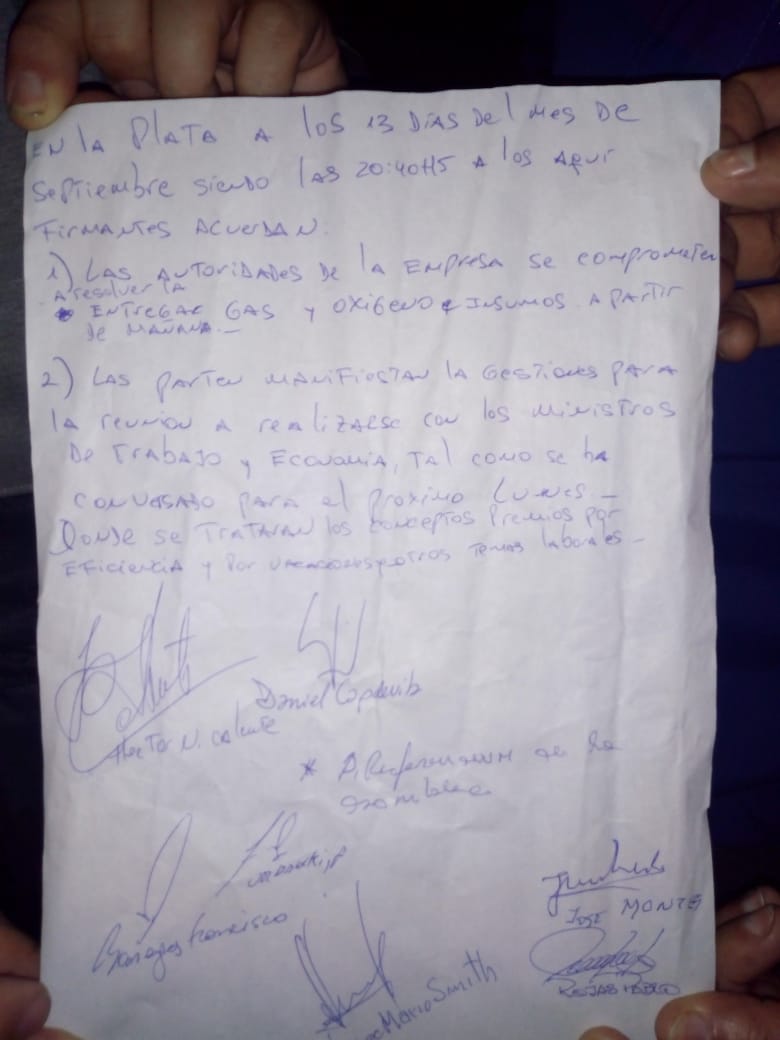 EN la PlatA A los 13 DiAs Del Mes DE
Septiembre siendo las 20:40HS A los AQUI
FirmANtes AcuerdAN:
1) LAS AutoridADES DE lA EmpresA se comprometen
A resolver lA
ENtregAr GAS y OXIGENO e INSUMOS A pArtir
de MAÑANA._
2) LAS parten mANifiestAN la Gestiones pArA
lA reunion A reAlizArse con los Ministros
De TrabAJO y EconomiA, tAl como se ha
conversado para el proximo Lunes _
Donde se TrAtArAN los conceptos Premios por
Eficiencia y Por vacaciones y otros temas laborales _
Hector N.
Daniel Capdevila
* A Referendum de la
asamblea
Francisco
José MONTES
Mario Smith
ROJAS PABLO